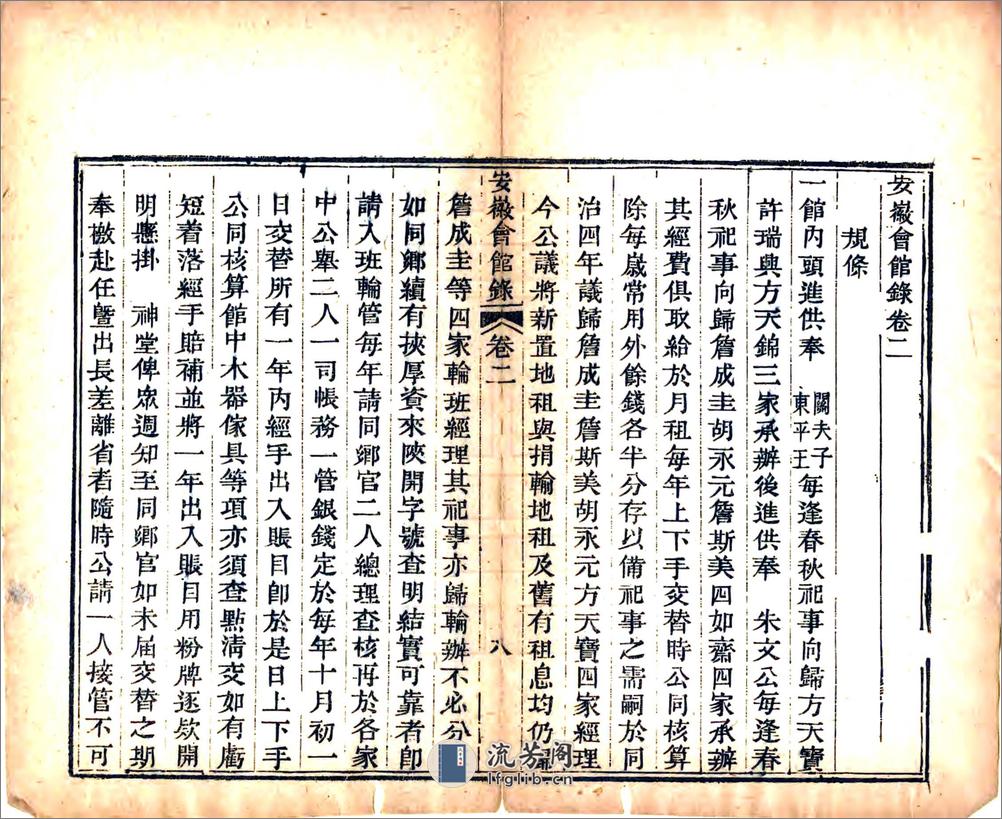 安徽會館錄卷二
規條
一館內頭進供奉 關夫子東平王每逢春秋祀事向歸方天寶
許瑞興方天錦三家承辦後進供奉 朱文公每逢春
秋祀事向歸詹成圭胡永元詹斯美四如齋四家承辦
其經費俱取給於月租每年上下手交替時公同核算
除每歲常用外餘錢各半分存以備祀事之需嗣於同
治四年議歸詹成圭詹斯美胡永元方天寶四家經理
今公議將新置地租與捐輸地租及舊有租息均仍歸
安徽會館錄 卷二 八
詹成圭等四家輪班經理其祀事亦歸輪辦不必分
如同鄉續有挾厚資來陝開字號查明結實可靠者卽
請入班輪管每年請同鄉官二人總理查核再於各家
中公舉二人一司帳務一管銀錢定於每年十月初一
日交替所有一年內經手出入賬目卽於是日上下手
公同核算館中木器傢具等項亦須查點清交如有虧
短着落經手賠補並將一年出入賬目用粉牌逐欵開
明懸掛 神堂俾眾週知至同鄉官如未届交替之期
奉檄赴任暨出長差離省者隨時公請一人接管不可
流芳阁
lfglib.cn